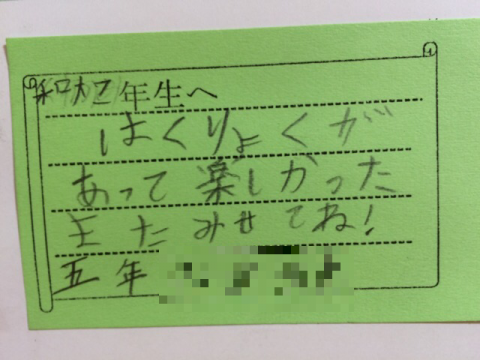 年生へ
はくりょくが
あって楽しかった
またみせてね!
五年